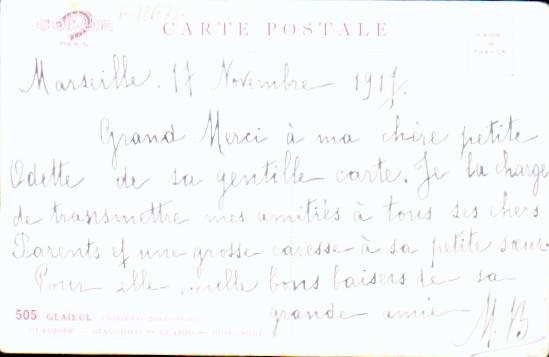 COLOR
PARIS
CARTE POSTALE
MADE
IN
FRANCE
Marseille. 17 Novembre 1917.
Grand Merci à ma chère petite
Odette de sa gentille carte. Je la charge
de transmettre mes amitiés à tous ses chers
Parents et une grosse caresse à sa petite sœur.
Pour elle, mille bons baisers de sa
grande amie M.B
505 GLAIEUL